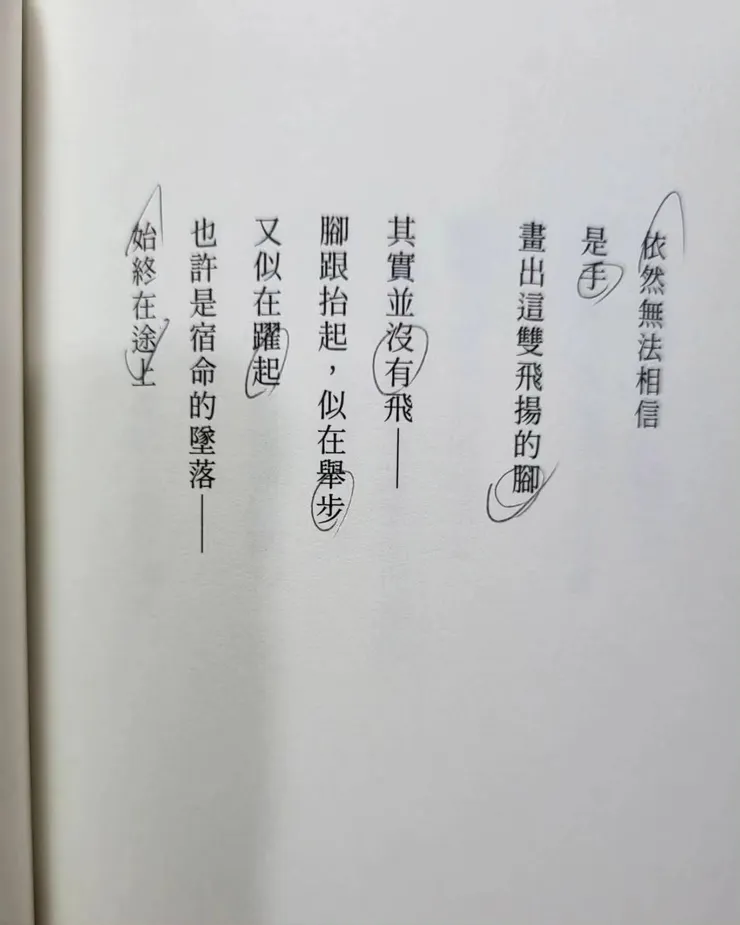 依然無法相信
是手
畫出這雙飛揚的腳
其實並沒有飛——
腳跟抬起，似在舉步
又似在躍起
也許是宿命的墜落——
始終在途上